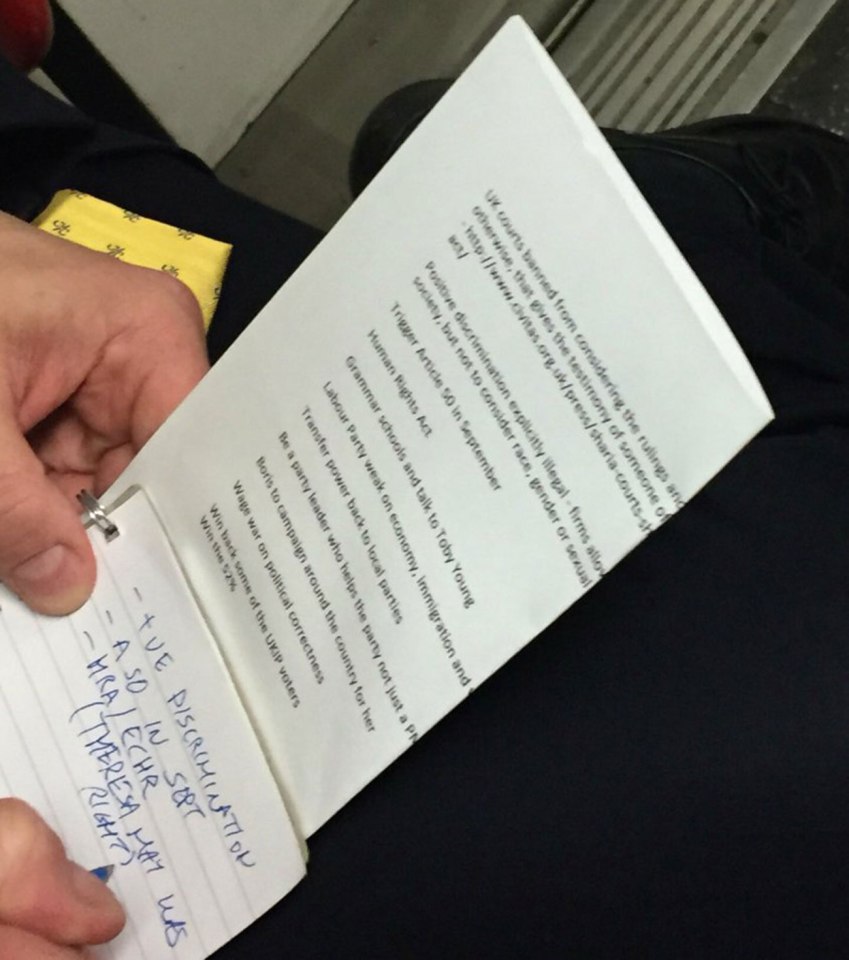 UK courts banned from considering the rulings and
otherwise, that gives the testimony of someone of
- http://www.civitas.org.uk/press/sharia-courts-sh
Positive discrimination explicitly illegal - firms allow
society, but not to consider race, gender or sexual
Trigger Article 50 in September
Human Rights Act
Grammar schools and talk to Toby Young
Labour Party weak on economy, immigration and
Transfer power back to local parties
Be a party leader who helps the party not just a PM
Boris to campaign around the country for her
Wage war on political correctness
Win back some of the UKIP voters
Win the 52%
- +VE DISCRIMINATION
- A 50 IN SEPT
- HRA/ECHR
(THERESA MAY WAS
RIGHT)